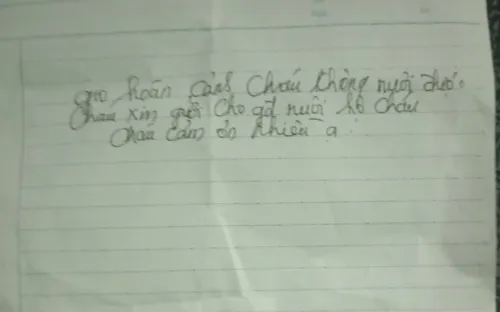 hoàn cảnh cháu không nuôi được
cháu xin gửi cho gđ nuôi hộ cháu
cháu cảm ơn nhiều ạ